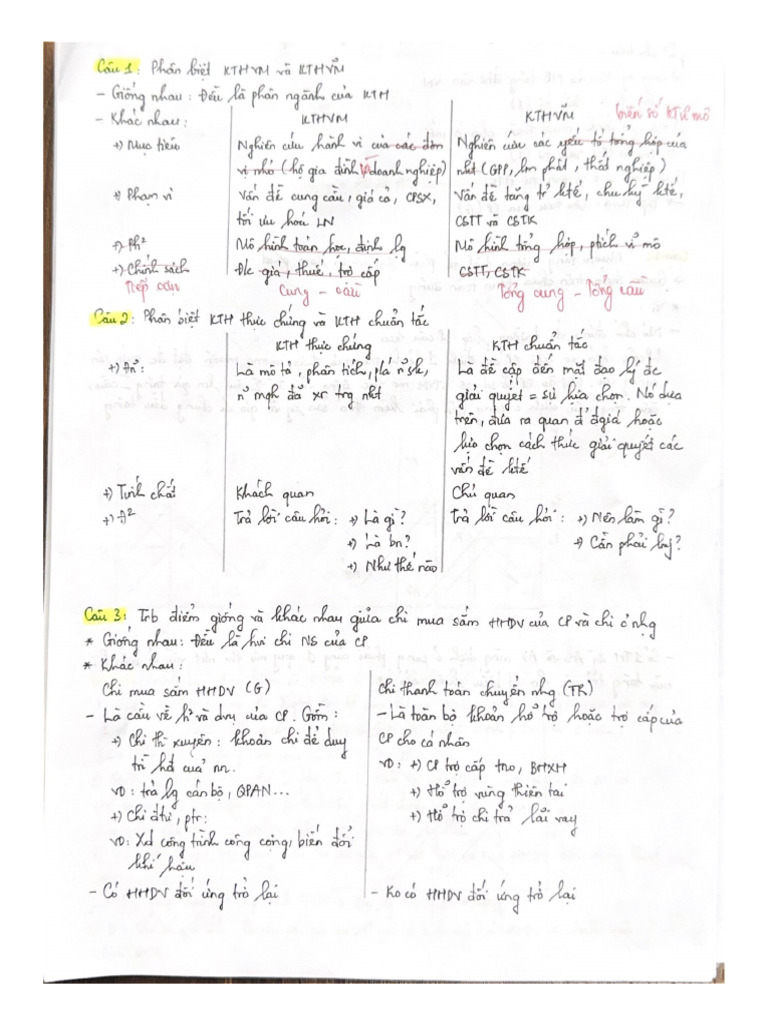 Câu 1: Phân biệt KTHVM và KTHVM̃
- Giống nhau: Đều là phân ngành của KTH
- Khác nhau: KTHVM KTHVM̃ biến số KTVĩ mô
+) Mục tiêu Nghiên cứu hành vi của các đơn Nghiên cứu các yếu tố tổng hợp của
vị nhỏ (hộ gia đình và doanh nghiệp) nkt (GPP, lm phát, thất nghiệp)
+) Phạm vi Vấn đề cung cầu, giá cả, CPSX, Vấn đề tăng tr ktế, chu kỳ ktế,
tối ưu hoá LN CSTT và CSTK
+) Ph² Mô hình toán học, định lg Mô hình tổng hợp, ptích vĩ mô
+) Chính sách Đk giá, thuế, trợ cấp CSTT, CSTK
Tiếp cận Cung - cầu Tổng cung - Tổng cầu
Câu 2: Phân biệt KTH thực chứng và KTH chuẩn tắc
KTH thực chứng KTH chuẩn tắc
+) Đn: Là mô tả, phân tích, n sk, Là đề cập đến mặt đạo lý đc
n mqh đã xr trg nkt giải quyết = sự lựa chọn. Nó dựa
trên, đưa ra quan đ đgiá hoặc
lựa chọn cách thức giải quyết các
vấn đề ktế
+) Tính chất Khách quan Chủ quan
Trả lời câu hỏi: +) Là gì? Trả lời câu hỏi: +) Nên làm gì?
+) Là bn? +) Cần phải ?
+) Như thế nào
Câu 3: Trb điểm giống và khác nhau giữa chi mua sắm HHDV của CP và chi c nhg
* Giống nhau: Đều là hvi chi NS của CP
* Khác nhau:
Chi mua sắm HHDV (G) Chi thanh toán chuyển nhg (TR)
- Là cầu về h² và dvụ của CP. Gồm: - Là toàn bộ khoản hổ trợ hoặc trợ cấp của
+) Chi th xuyên: khoản chi để duy CP cho cá nhân
trì hđ của nn. VD: +) CP trợ cấp tno, BHXH
VD: trả lg cán bộ, QPAN... +) Hỗ trợ vùng thiên tai
+) Chi đtư, ptr: +) Hỗ trợ chi trả lãi vay
VD: Xd công trình công cộng, biến đổi
khí hậu
- Có HHDV đối ứng trở lại - Ko có HHDV đối ứng trở lại